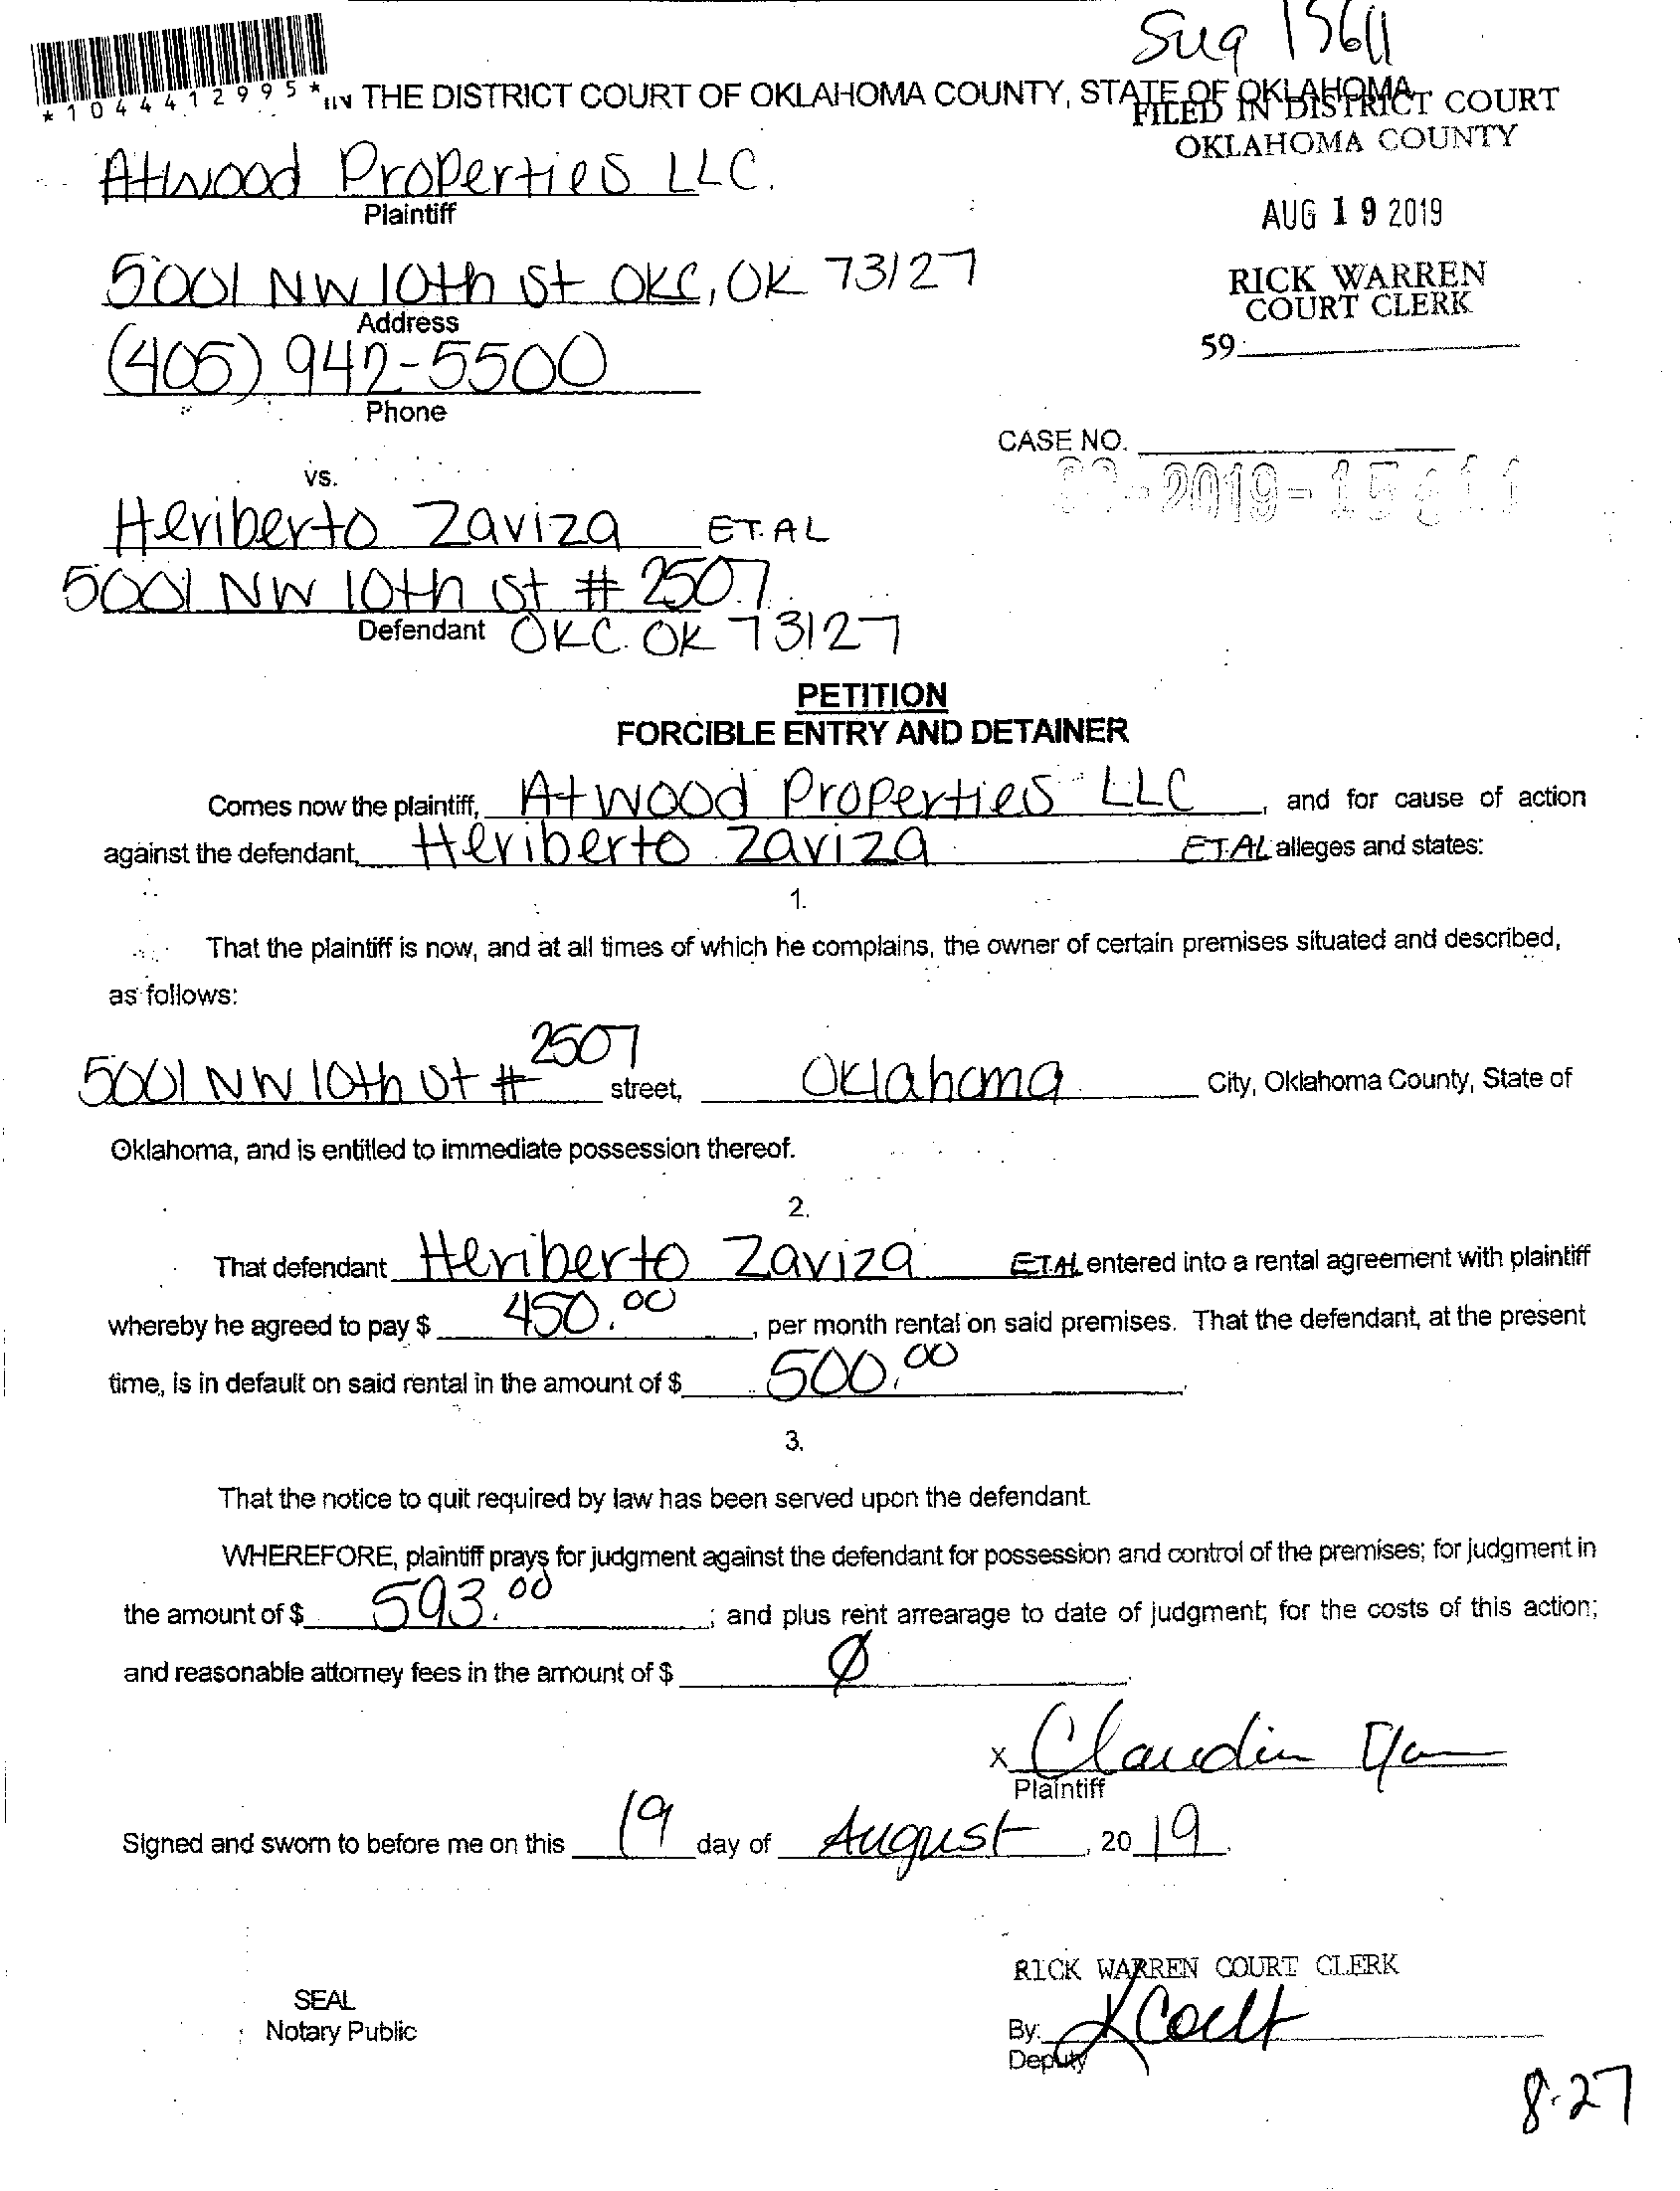 Sug 15611
*1044412995*
IN THE DISTRICT COURT OF OKLAHOMA COUNTY, STATE OF OKLAHOMA
FILED IN DISTRICT COURT
OKLAHOMA COUNTY
Atwood Properties LLC.
Plaintiff
AUG 19 2019
5001 NW 10th St OKC, OK 73127
Address
RICK WARREN
COURT CLERK
59
(405) 942-5500
Phone
CASE NO.
-2019-15611
vs.
Heriberto Zaviza ET.AL
5001 NW 10th St # 2507
Defendant OKC. OK 73127
PETITION
FORCIBLE ENTRY AND DETAINER
Comes now the plaintiff, Atwood Properties LLC, and for cause of action
against the defendant, Heriberto Zaviza ET.AL alleges and states:
1.
That the plaintiff is now, and at all times of which he complains, the owner of certain premises situated and described,
as follows:
5001 NW 10th St # 2507 street, Oklahoma City, Oklahoma County, State of
Oklahoma, and is entitled to immediate possession thereof.
2.
That defendant Heriberto Zaviza ET.AL entered into a rental agreement with plaintiff
whereby he agreed to pay $ 450.00, per month rental on said premises. That the defendant, at the present
time, is in default on said rental in the amount of $ 500.00.
3.
That the notice to quit required by law has been served upon the defendant.
WHEREFORE, plaintiff prays for judgment against the defendant for possession and control of the premises; for judgment in
the amount of $ 593.00; and plus rent arrearage to date of judgment; for the costs of this action;
and reasonable attorney fees in the amount of $ Ø.
x Claudia
Plaintiff
Signed and sworn to before me on this 19 day of August, 2019.
RICK WARREN COURT CLERK
SEAL
Notary Public
By:
Deputy
8-27